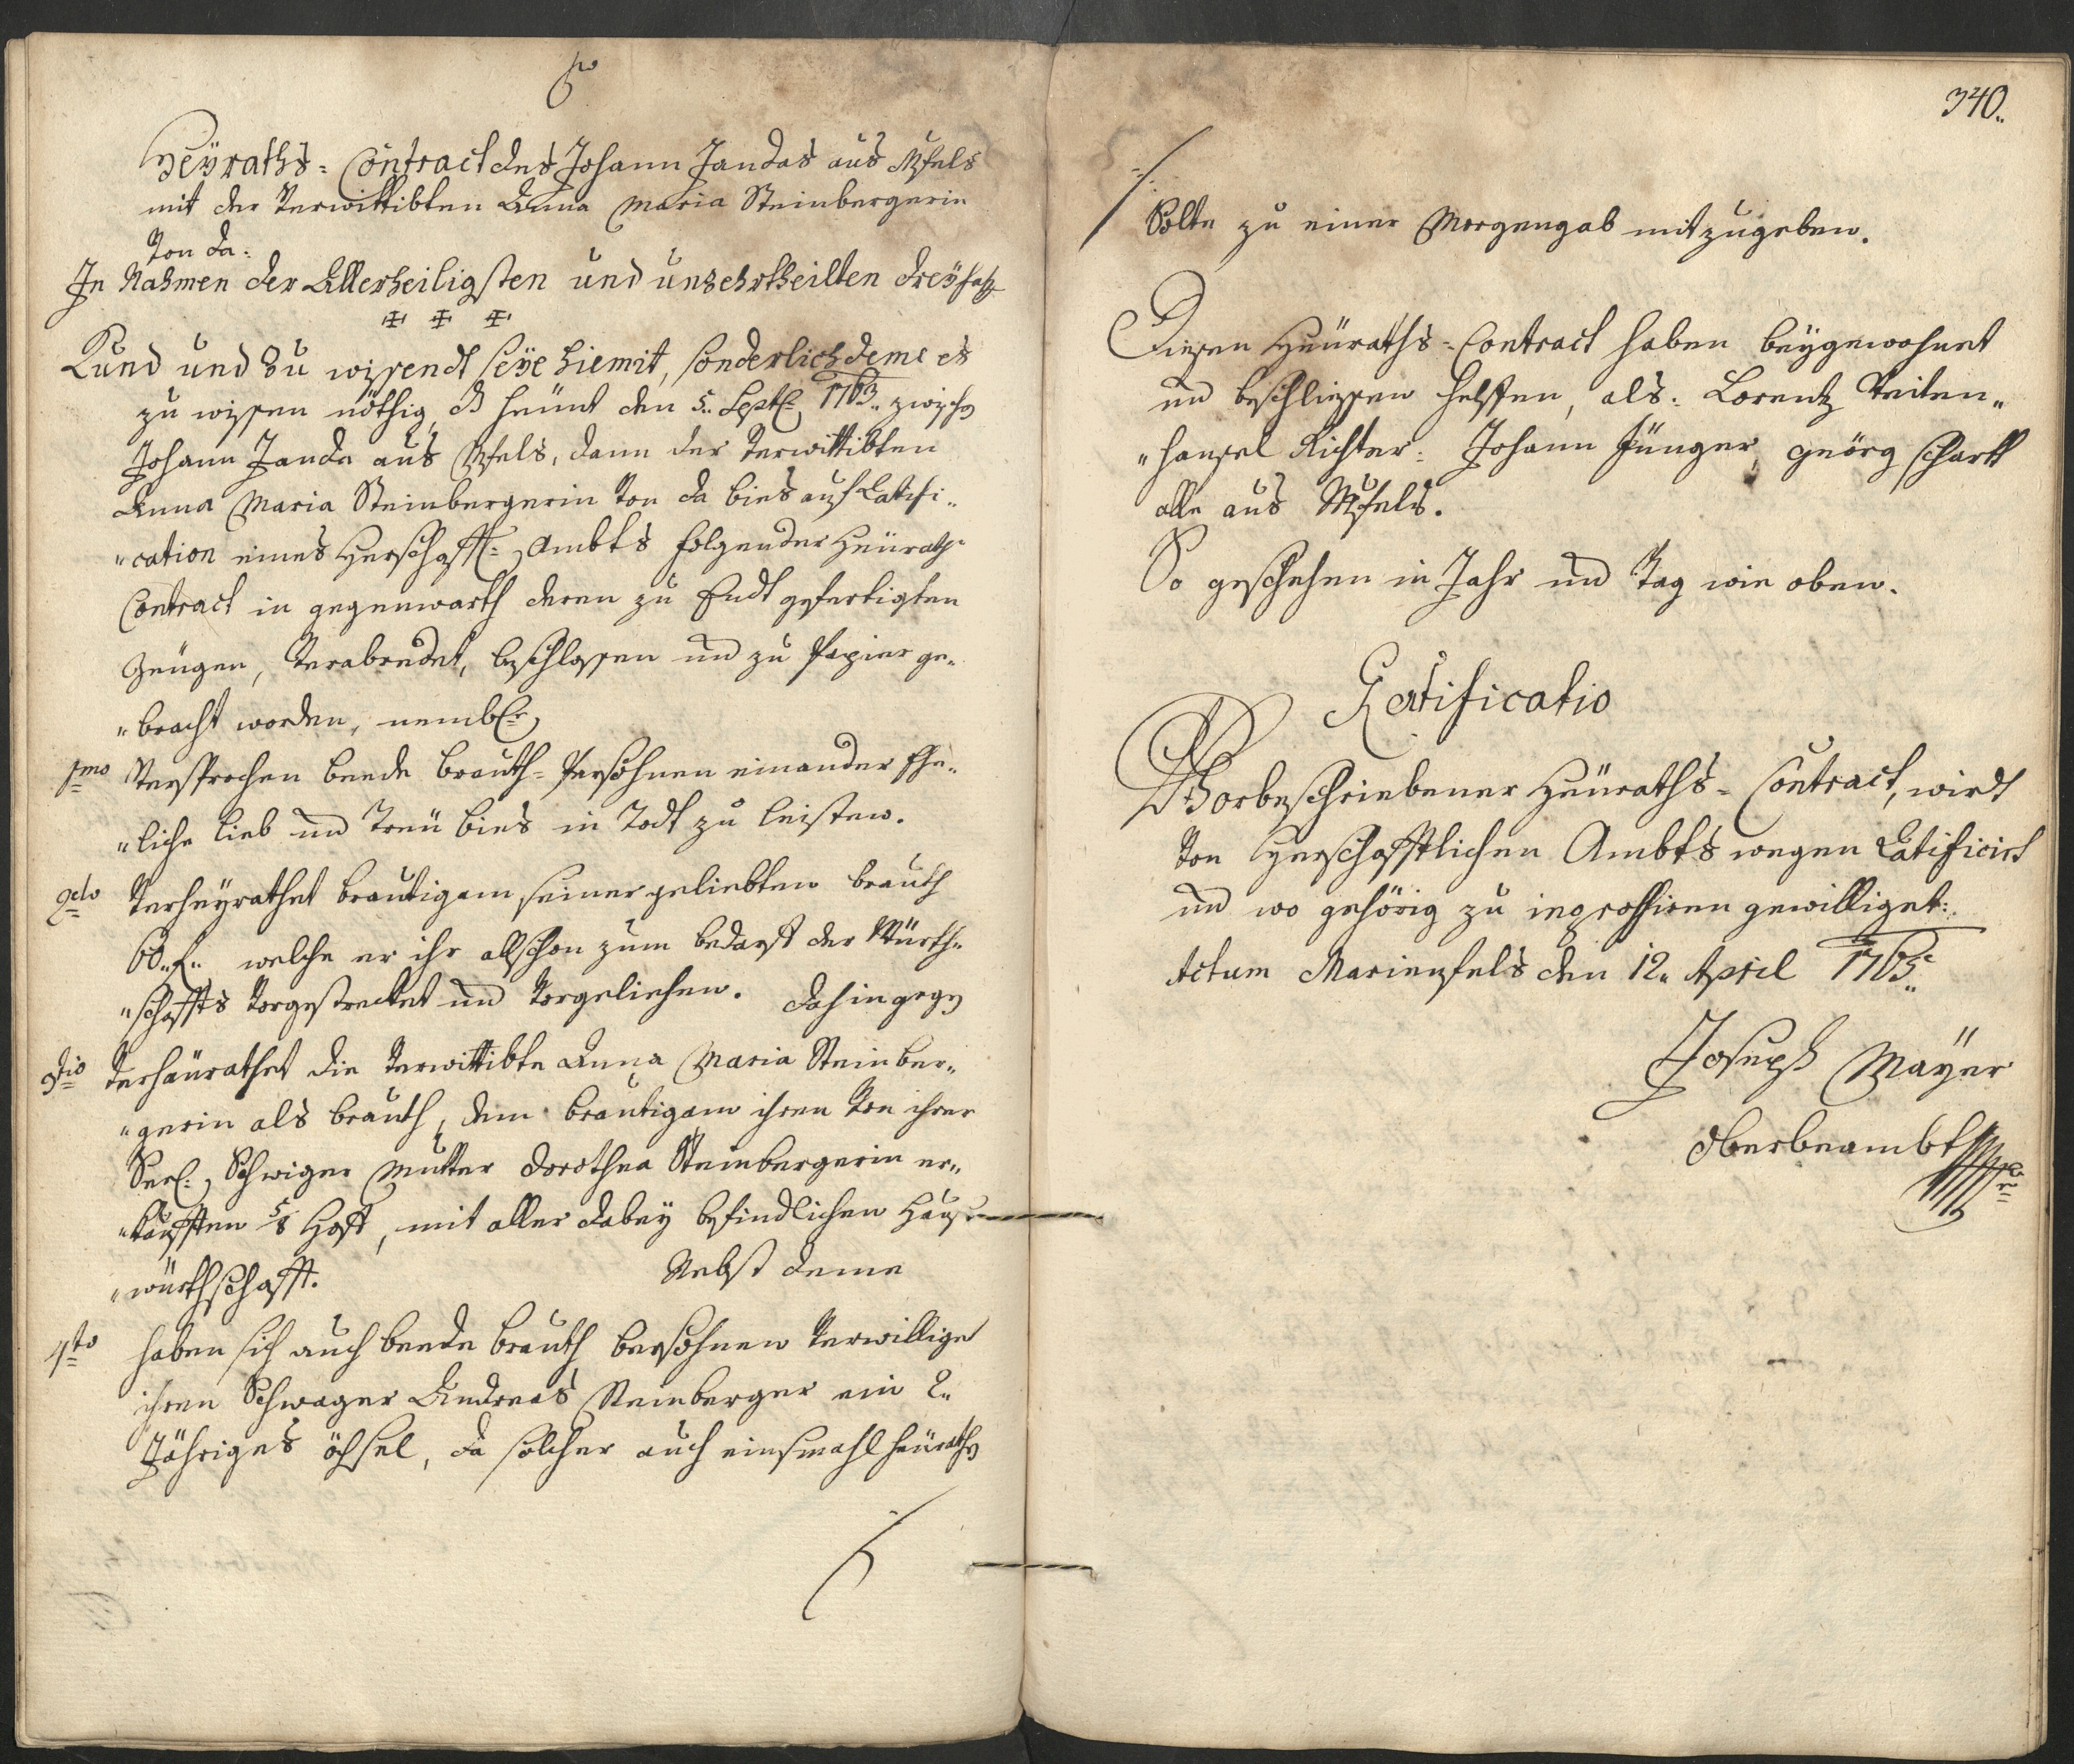 Heÿraths-Contract des Johann Jandas aus
mit der Verwittibten Anna Maria Steinbergerin
Von da:
In Nahmen der Allerheiligsten und unzehrtheilten dreÿfalt
Kund und zu wissendt seÿe hiemit, sonderlich deme es
zu wissen nöthig, d heünt den 5. Septb: 1763. zwischen
Johann Janda aus, dann der Verwittibten
Anna Maria Steinbergerin Von da bies auf Ratifi„
„cation eines Herschafftl: Ambts folgender Heürath-
Contract in gegenwarth deren zu Endt gefertigten
Zeügen, Verabredet, beschlossen und zu Papier ge„
„bracht worden, nembl:
1mo Versprechen beede brauth-Persohnen einander Ehe„
„liche lieb und Treü bies in Todt zu leisten.
2do Verheÿrathet brautigam seiner geliebten brauth
60„f„ welche er ihr allschon zum bedarff der Würth„
„schaffts Vorgestrecket und Vorgeliehen. dahingegen
3tio Verheürathet die Verwittibte Anna Maria Steinber„
„gerin als brauth, dem brautigam ihren Von ihrer
Seel: Schwiger Mutter Dorothea Steinbergerin er„
„kaufften 5/8 Hoff, mit aller dabeÿ befindlichen Hauß
„würthschafft. Nebst deme
4to haben sich auch beede brauth bersohnen Verwilliget
ihren Schwager Andreas Steinberger ein 2„
Jähriges öchsel, da solcher auch einsmahl heürathen
340.
Solte zu einer Morgengab mitzugeben.
Diesen Heüraths-Contract haben beÿgewohnet
und beschliessen helffen, als: Lorentz Veiten„
„hansel Richter: Johann Jünger, Geörg Schartl
alle aus
So geschehen in Jahr und Tag wie oben.
Ratificatio
Vorbeschriebener Heüraths-Contract, wirdt
Von Herschafftlichen Ambts wegen Ratificirt
und wo gehörig zu ingrossiren gewilliget:
Actum Marienfels den 12„ April 1765„
Joseph Maÿer
Oberbeambter